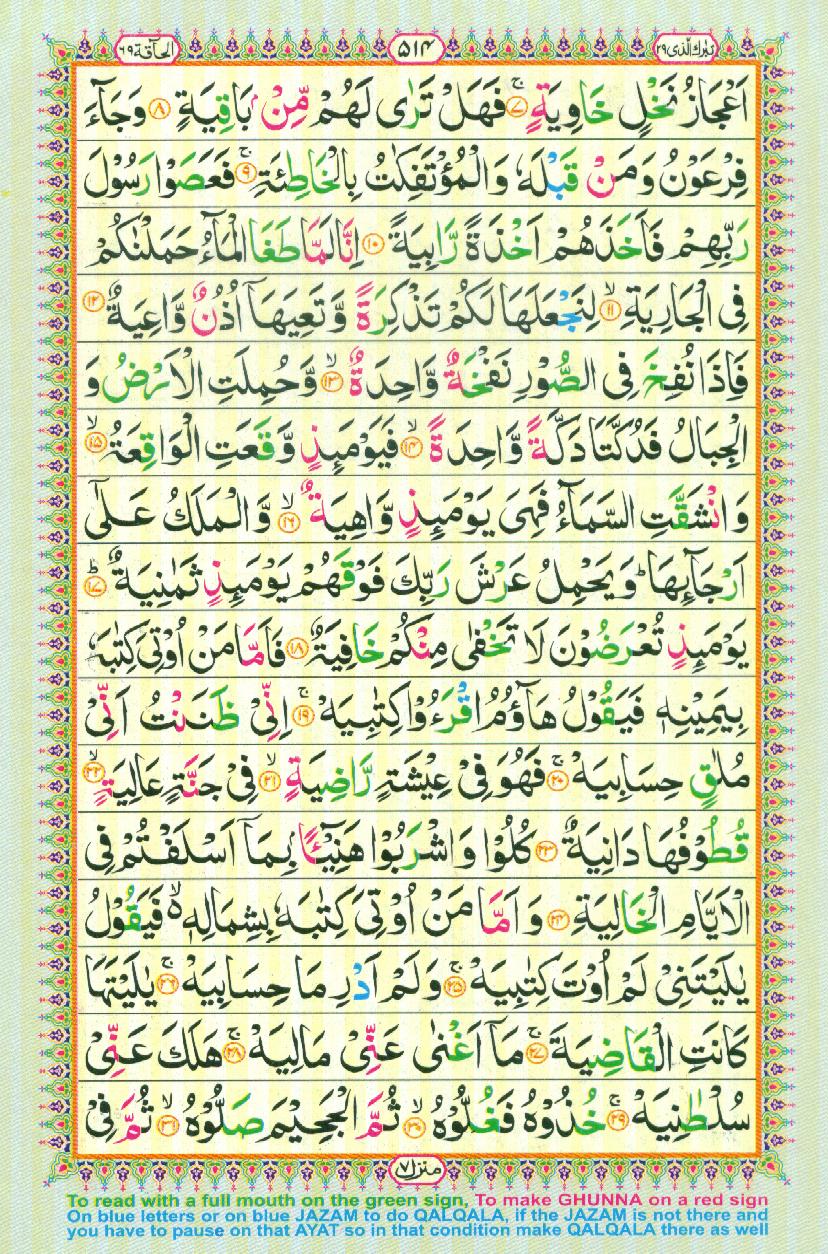 تبٰرك الذى ٢٩
۵۱۴
الحآقة ٦٩
اَعْجَازُ نَخْلٍ خَاوِيَةٍ ۚ‏﴿۷﴾ فَهَلْ تَرٰى لَهُمْ مِّنْۢ بَاقِيَةٍ ﴿۸﴾ وَجَآءَ
فِرْعَوْنُ وَمَنْ قَبْلَهٗ وَالْمُؤْتَفِكٰتُ بِالْخَاطِئَةِ ۚ﴿۹﴾ فَعَصَوْا رَسُوْلَ
رَبِّهِمْ فَاَخَذَهُمْ اَخْذَةً رَّابِيَةً ﴿۱۰﴾ اِنَّا لَمَّا طَغَا الْمَآءُ حَمَلْنٰكُمْ
فِى الْجَارِيَةِ ۙ﴿۱۱﴾ لِنَجْعَلَهَا لَكُمْ تَذْكِرَةً وَّتَعِيَهَاۤ اُذُنٌ وَّاعِيَةٌ ﴿۱۲﴾
فَاِذَا نُفِخَ فِى الصُّوْرِ نَفْخَةٌ وَّاحِدَةٌ ۙ﴿۱۳﴾ وَّحُمِلَتِ الْاَرْضُ وَ
الْجِبَالُ فَدُكَّتَا دَكَّةً وَّاحِدَةً ۙ﴿۱۴﴾ فَيَوْمَئِذٍ وَّقَعَتِ الْوَاقِعَةُ ۙ﴿۱۵﴾
وَانْشَقَّتِ السَّمَآءُ فَهِىَ يَوْمَئِذٍ وَّاهِيَةٌ ۙ﴿۱۶﴾ وَّالْمَلَكُ عَلٰٓى
اَرْجَآئِهَا ؕ وَيَحْمِلُ عَرْشَ رَبِّكَ فَوْقَهُمْ يَوْمَئِذٍ ثَمٰنِيَةٌ ؕ﴿۱۷﴾
يَوْمَئِذٍ تُعْرَضُوْنَ لَا تَخْفٰى مِنْكُمْ خَافِيَةٌ ﴿۱۸﴾ فَاَمَّا مَنْ اُوْتِىَ كِتٰبَهٗ
بِيَمِيْنِهٖ فَيَقُوْلُ هَآؤُمُ اقْرَءُوْا كِتٰبِيَهْ ۚ﴿۱۹﴾ اِنِّىْ ظَنَنْتُ اَنِّىْ
مُلٰقٍ حِسَابِيَهْ ۚ﴿۲۰﴾ فَهُوَ فِىْ عِيْشَةٍ رَّاضِيَةٍ ۙ﴿۲۱﴾ فِىْ جَنَّةٍ عَالِيَةٍ ۙ﴿۲۲﴾
قُطُوْفُهَا دَانِيَةٌ ﴿۲۳﴾ كُلُوْا وَاشْرَبُوْا هَنِيْٓـئًۢا بِمَاۤ اَسْلَفْتُمْ فِى
الْاَيَّامِ الْخَالِيَةِ ﴿۲۴﴾ وَاَمَّا مَنْ اُوْتِىَ كِتٰبَهٗ بِشِمَالِهٖ ۙ۬ فَيَقُوْلُ
يٰلَيْتَنِىْ لَمْ اُوْتَ كِتٰبِيَهْ ۚ﴿۲۵﴾ وَلَمْ اَدْرِ مَا حِسَابِيَهْ ۚ﴿۲۶﴾ يٰلَيْتَهَا
كَانَتِ الْقَاضِيَةَ ۚ﴿۲۷﴾ مَاۤ اَغْنٰى عَنِّىْ مَالِيَهْ ۚ﴿۲۸﴾ هَلَكَ عَنِّىْ
سُلْطٰنِيَهْ ۚ﴿۲۹﴾ خُذُوْهُ فَغُلُّوْهُ ۙ﴿۳۰﴾ ثُمَّ الْجَحِيْمَ صَلُّوْهُ ۙ﴿۳۱﴾ ثُمَّ فِىْ
منزل ۷
To read with a full mouth on the green sign, To make GHUNNA on a red sign
On blue letters or on blue JAZAM to do QALQALA, if the JAZAM is not there and
you have to pause on that AYAT so in that condition make QALQALA there as well